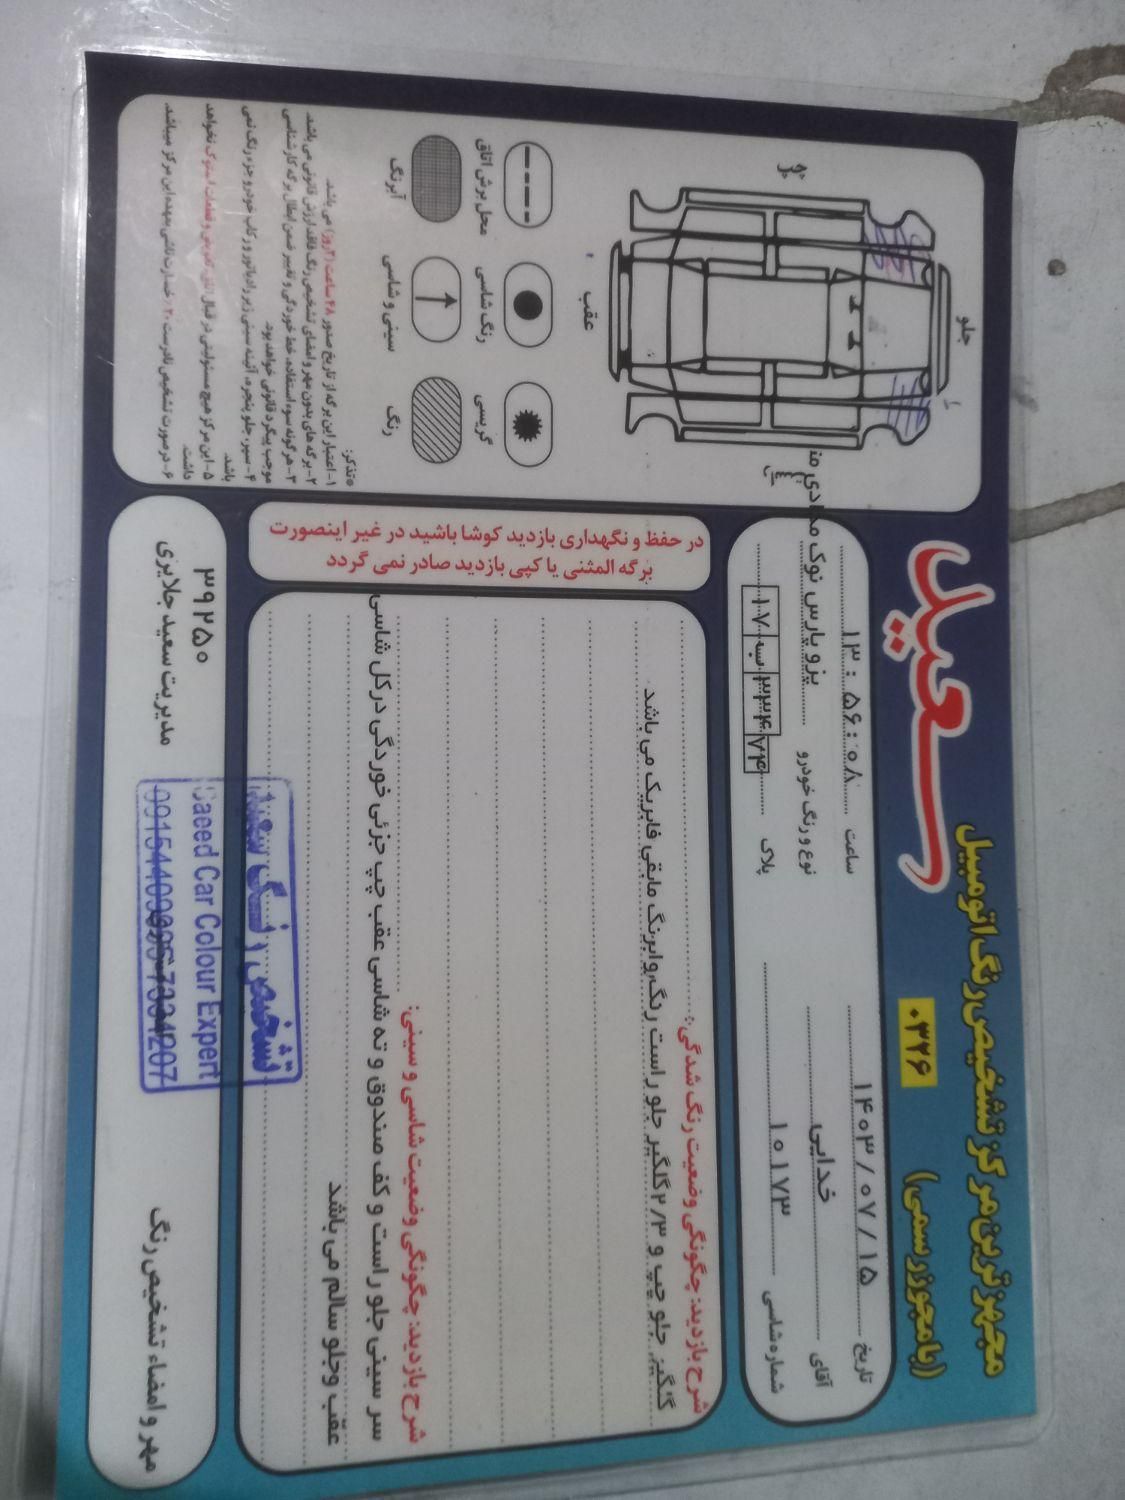 مجهزترین مرکز تشخیص رنگ اتومبیل
(بامجوز رسمی)
۰۳۲۶
سعید
تاریخ ۱۴۰۳/۰۷/۱۵
ساعت ۱۳:۵۶:۰۸
آقای خدایی
نوع و رنگ خودرو پژو پارس نوک مدادی
شماره شاسی ۱۰۱۷۳
پلاک ۱۷ ب ۳۳۴ ۷۴
جلو
عقب
محل برش اتاق
رنگ شاسی
گریسی
آبرنگ
سینی و شاسی
رنگ
تذکر:
۱- اعتبار این برگه از تاریخ صدور ۴۸ ساعت (۲ روز) می باشد.
۲- برگه های بدون مهر و امضای تشخیص رنگ فاقد ارزش قانونی می باشد.
۳- هر گونه سوء استفاده، خط خوردگی و تغییر ضمن ابطال برگه کارشناسی
موجب پیگرد قانونی خواهد بود
۴- سپر، جلو پنجره، آئینه سینی زیر رادیاتور و رکاب خودرو جزء رنگ نمی
باشد.
۵- این مرکز هیچ مسئولیتی در قبال اتاق تعویض و قطعات استوک نخواهد
داشت.
در حفظ و نگهداری بازدید کوشا باشید در غیر اینصورت
برگه المثنی یا کپی بازدید صادر نمی گردد
شرح بازدید: چگونگی وضعیت رنگ شدگی:
گلگیر جلو چپ و ۲/۳ گلگیر جلو راست رنگ، وابرنگ مابقی فابریک می باشد
شرح بازدید: چگونگی وضعیت شاسی و سینی:
سر سینی جلو راست و کف صندوق و ته شاسی عقب چپ جزئی خوردگی درکل شاسی
عقب وجلو سالم می باشد
مهر و امضاء تشخیص رنگ
۳۹۲۵۰
مدیریت سعید جلایری
تشخیص رنگ سعید
Saeed Car Colour Expert